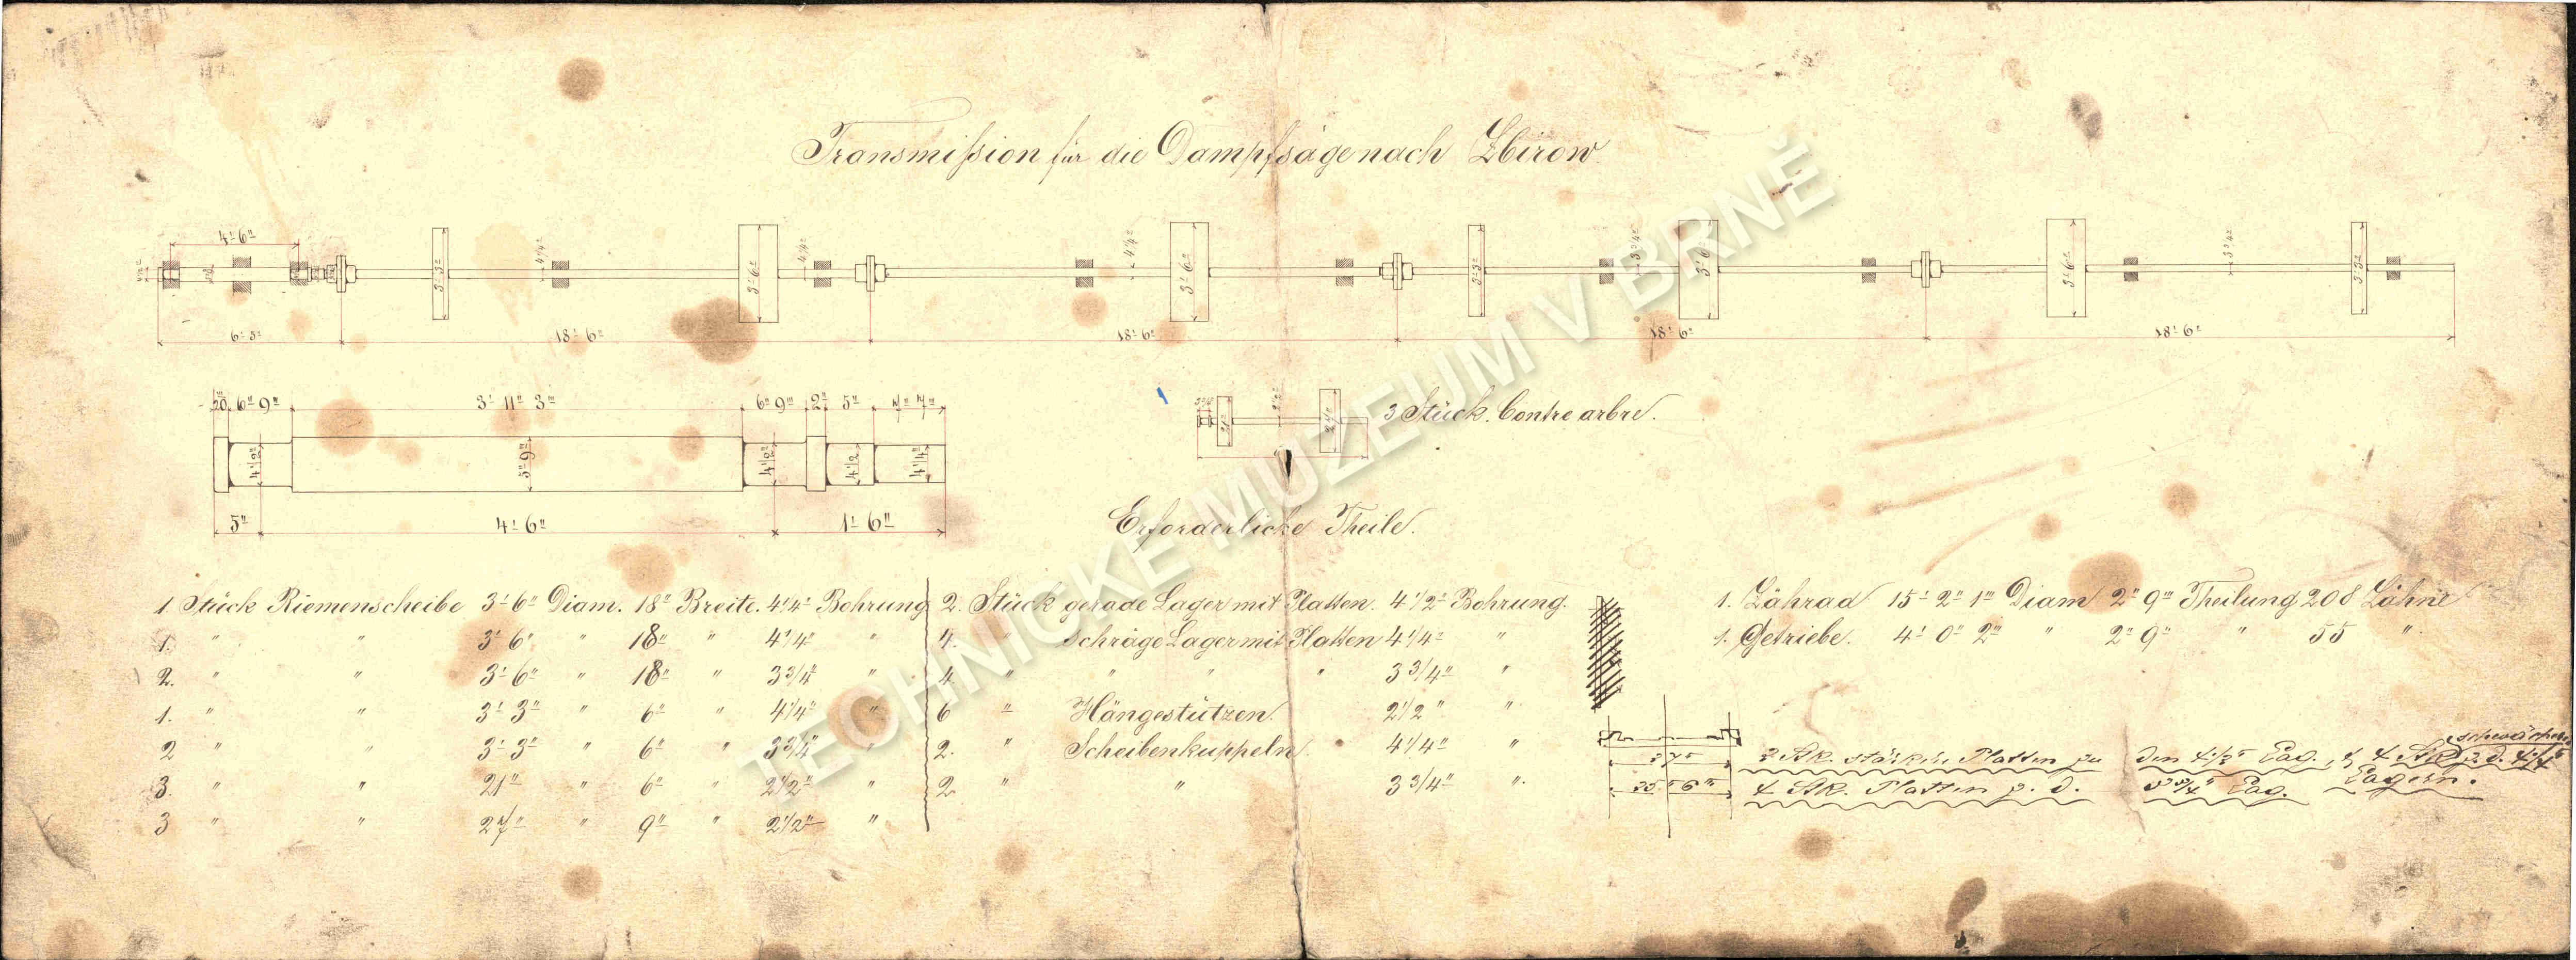 Transmißion für die Dampfsäge nach Zbirow.
4' 6"
3' 3"
4 1/4"
3' 6"
4 1/4"
4 1/4"
3' 6"
3' 3"
3 3/4"
3' 6"
3' 6"
3 3/4"
3' 3"
6' 5"
18' 6"
18' 6"
18' 6"
18' 6"
6" 9"' 3' 11" 3"' 6" 9"' 2" 5" 7" 7"'
4 1/2" 5" 9"' 4 1/2" 4 1/2 4 1/4"
5" 4' 6" 1' 6"
21" 2 1/2" 27"
3 Stück. Contre arbre.
Erforderliche Theile.
1 Stück Riemenscheibe 3' 6" Diam. 18" Breite. 4 1/4" Bohrung
1. " " 3' 6" " 18" " 4 1/4" "
2. " " 3' 6" " 18" " 3 3/4" "
1. " " 3' 3" " 6" " 4 1/4" "
2 " " 3' 3" " 6" " 3 3/4" "
3. " " 21" " 6" " 2 1/2" "
3 " " 27" " 9" " 2 1/2" "
2. Stück gerade Lager mit Platten. 4 1/2" Bohrung.
4. " Schräge Lager mit Platten 4 1/4" "
4 " " " " 3 3/4" "
6 " Hängestützen. 2 1/2" "
2. " Scheibenkuppeln. 4 1/4" "
2 " " 3 3/4" "
1. Zähnrad 15' 2" 1"' Diam 2" 9"' Theilung 208 Zähne
1. Getriebe. 4' 0" 2"' " 2" 9"' " 55 "
schwächere
Stk. stärkere Platten zu den 4 1/2" Lag., 4 Stk z. d. 4 1/4"
Lagern.
4 Stk. Platten z. d. 3 3/4" Lag.
TECHNICKÉ MUZEUM V BRNĚ